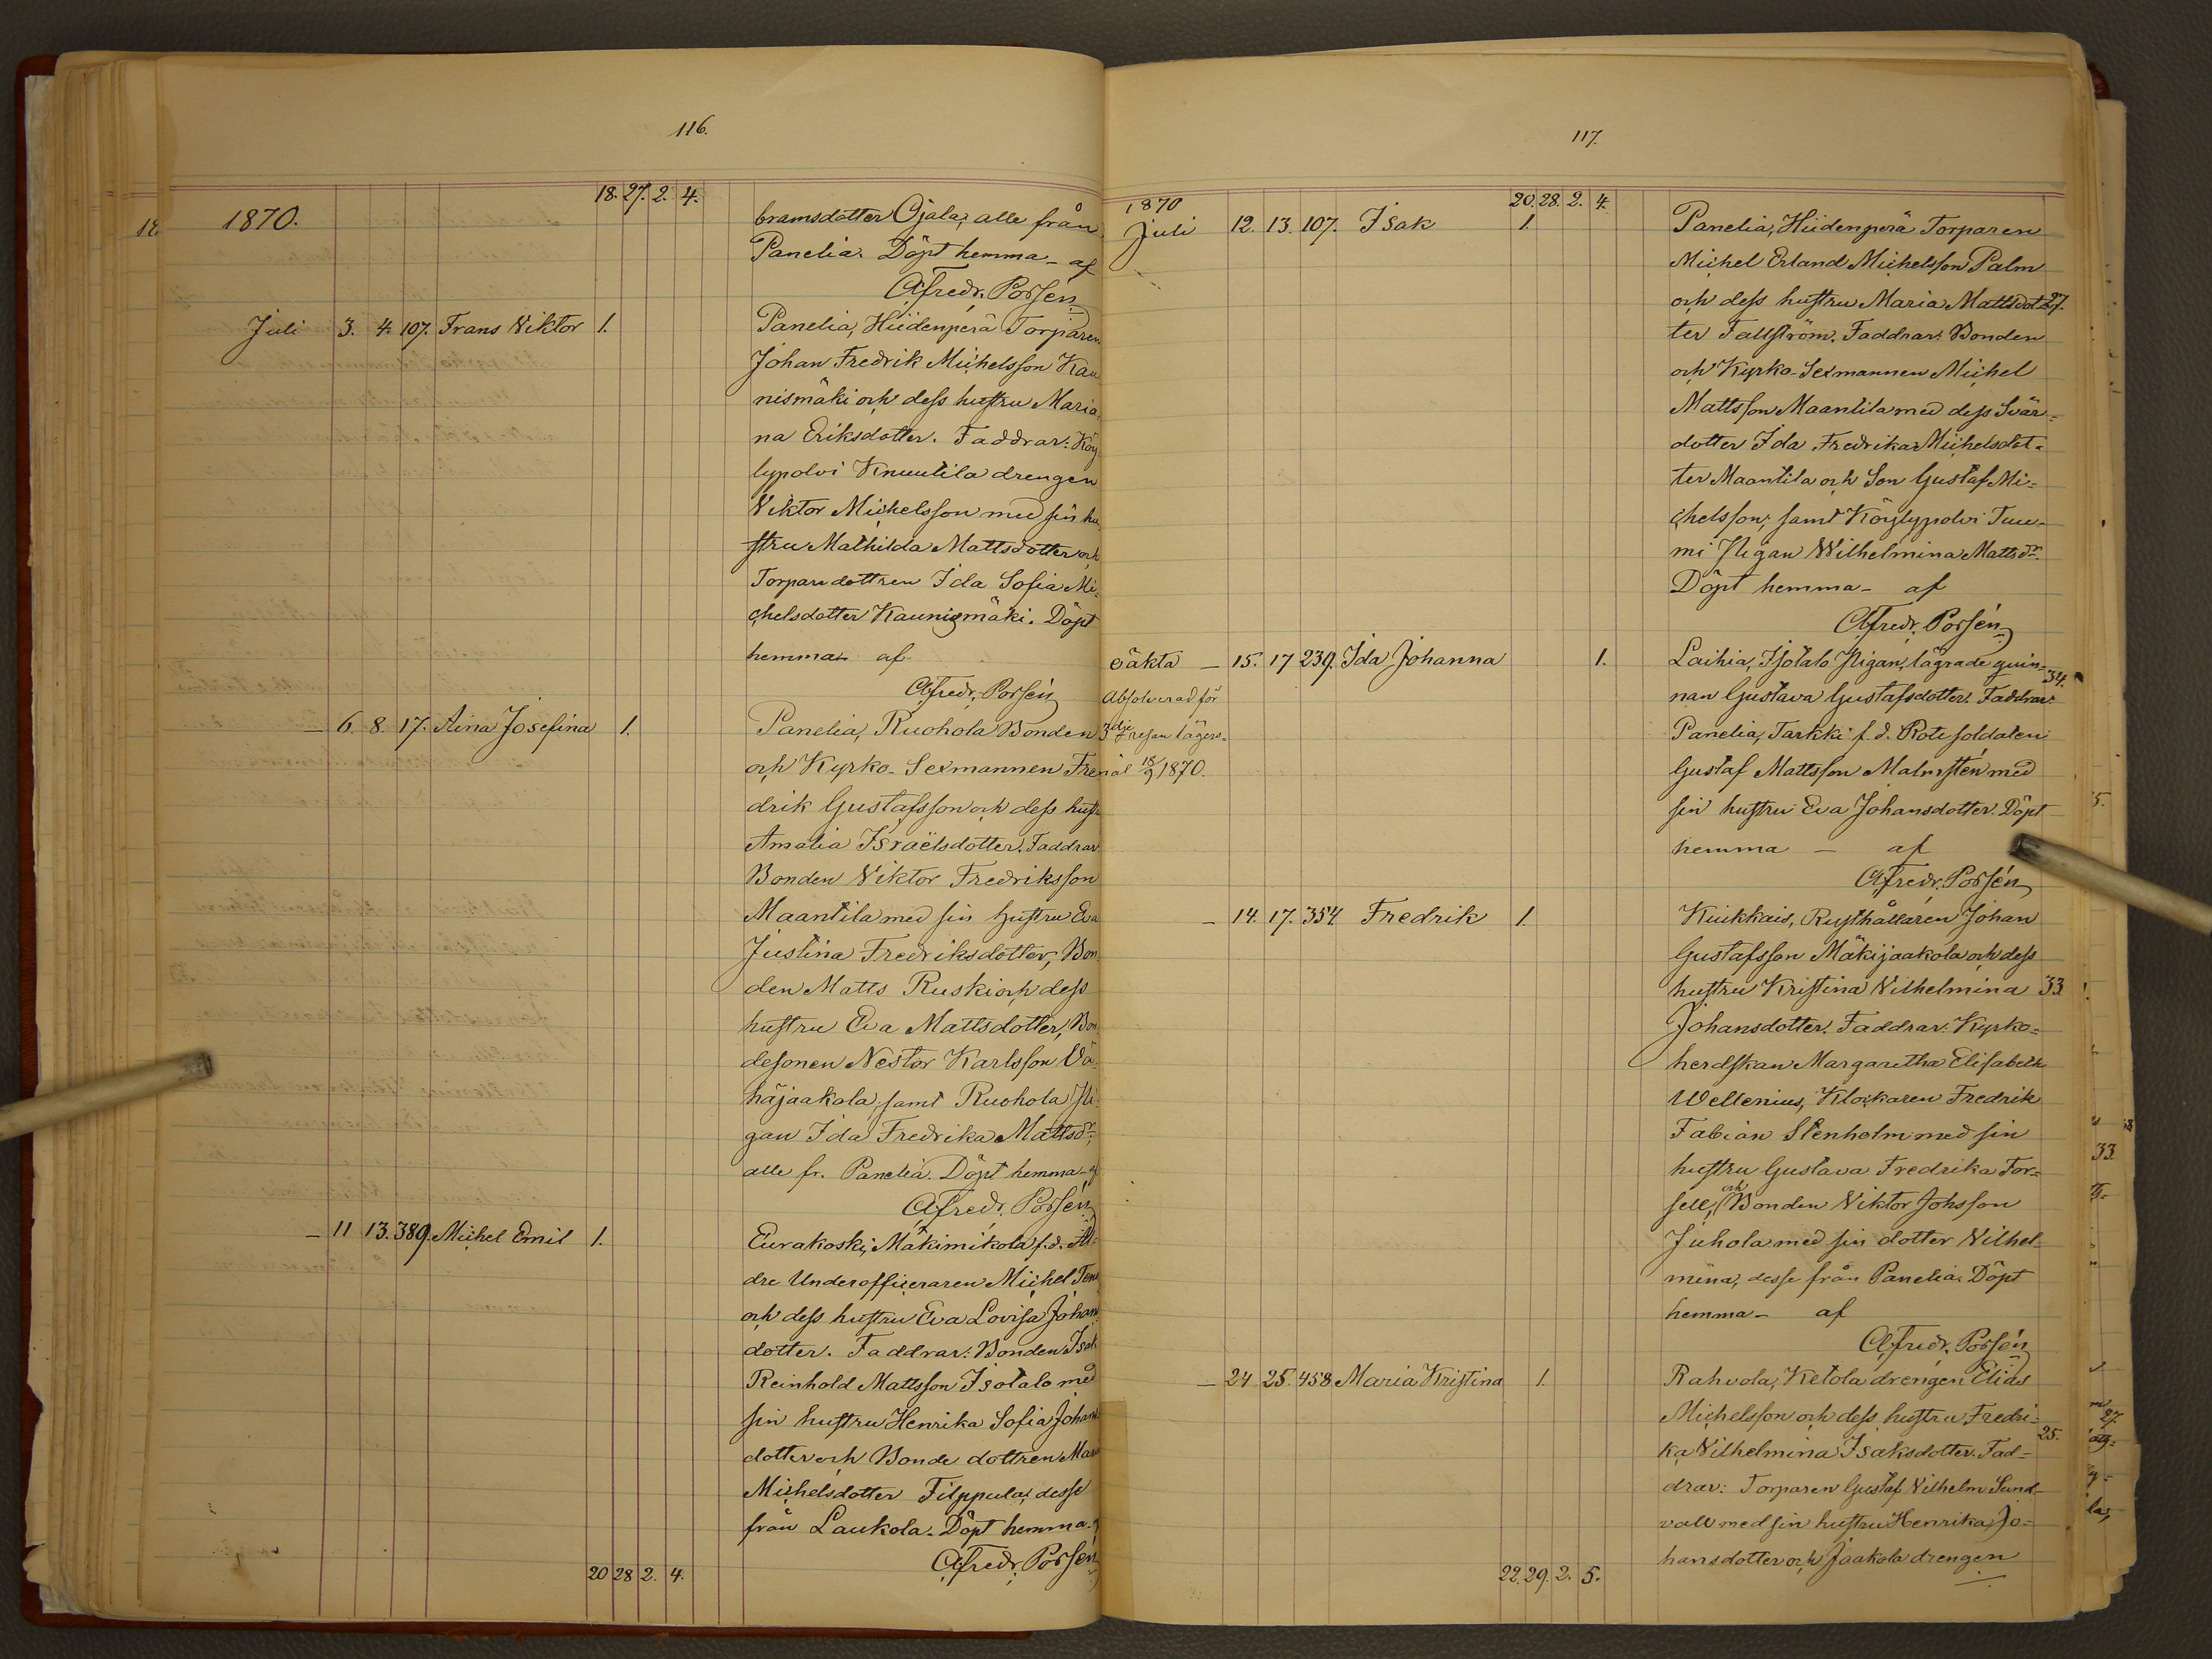 116.
18. 27. 2. 4.
1870.
bramsdotter Ojala, alle från
Panelia. Döpt hemma - af
Afredr. Porsén
Juli 3. 4. 107. Frans Viktor 1. Panelia, Hiidenperä Torparen
Johan Fredrik Michelsson Kau
nismäki och dess hustru Maria
na Eriksdotter. Faddrar: Köy
lypolvi Knuutila drengen
Viktor Michelsson med sin hu
stru Mathilda Mattsdotter och
Torparedottren Ida Sofia Mi-
chelsdotter Kaunismäki. Döpt
hemma af
Afredr. Porsén
— 6. 8. 17. Aina Josefina 1. Panelia, Ruohola Bonden
och Kyrko-Sexmannen Fre
drik Gustafsson och dess hust
Amalia Israëlsdotter. Faddrar
Bonden Viktor Fredriksson
Maantila med sin hustru Eva
Justina Fredriksdotter, Bon
den Matts Ruski och dess
hustru Eva Mattsdotter, Bon
desonen Nestor Karlsson Vä
häjaakola, samt Ruohola Pi
gan Ida Fredrika Mattsdr,
alle fr. Panelia. Döpt hemma - af
Afredr. Porsén
— 11 13. 389. Michel Emil 1. Eurakoski, Mäkimikola f.d. Äl
dre Underofficeraren Michel Ten
och dess hustru Eva Lovisa Johans
dotter. Faddrar: Bonden Isak
Reinhold Mattsson Isotalo med
sin hustru Henrika Sofia Johans
dotter och Bonde dottren Mari
Michelsdotter Filppula, desse
från Laukola. Döpt hemma.
Afredr. Porsén
20 28 2. 4.
117.
1870 20. 28. 2. 4.
Juli 12. 13. 107. Isak 1. Panelia, Hiidenperä Torparen
Michel Erland Michelsson Palm
och dess hustru Maria Mattsdot 27.
ter Fallström. Faddrar: Bonden
och Kyrko-Sexmannen Michel
Mattsson Maantila med dess Svär-
dotter Ida Fredrika Michelsdot-
ter Maantila och Son Gustaf Mi-
chelsson; samt Köylypolvi Tuo-
mi Pigan Wilhelmina Mattsdr.
Döpt hemma - af
Afredr. Porsén
oäkta — 15. 17 239. Ida Johanna 1. Laihia, Isotalo Pigan, lägrade quin- 34.
Absolverad för nan Gustava Gustafsdotter. Faddrar:
3dje resan lägers- Panelia, Tarkki f.d. Rote soldaten
mål 18/9 1870. Gustaf Mattsson Malmstén med
sin hustru Eva Johansdotter. Döpt
hemma — af
Afredr. Porsén
— 14. 17. 354. Fredrik 1. Kiukkais, Rusthållaren Johan
Gustafsson Mäkijaakola och dess
hustru Kristina Vilhelmina 33
Johansdotter. Faddrar: Kyrko-
herdskan Margaretha Elisabeth
Wellenius, Klockaren Fredrik
Fabian Stenholm med sin
hustru Gustava Fredrika For-
sell, och Bonden Viktor Johsson
Juhola med sin dotter Vilhel-
mina, desse från Panelia. Döpt
hemma - af
Afredr. Porsén
— 24 25. 458 Maria Kristina 1. Rahvola, Ketola drengen Elias
Michelsson och dess hustru Fredri-
25.
ka Vilhelmina Isaksdotter. Fad-
drar: Torparen Gustaf Vilhelm Sund
vall med sin hustru Henrika Jo-
hansdotter och Jaakola drengen
22. 29. 2. 5.